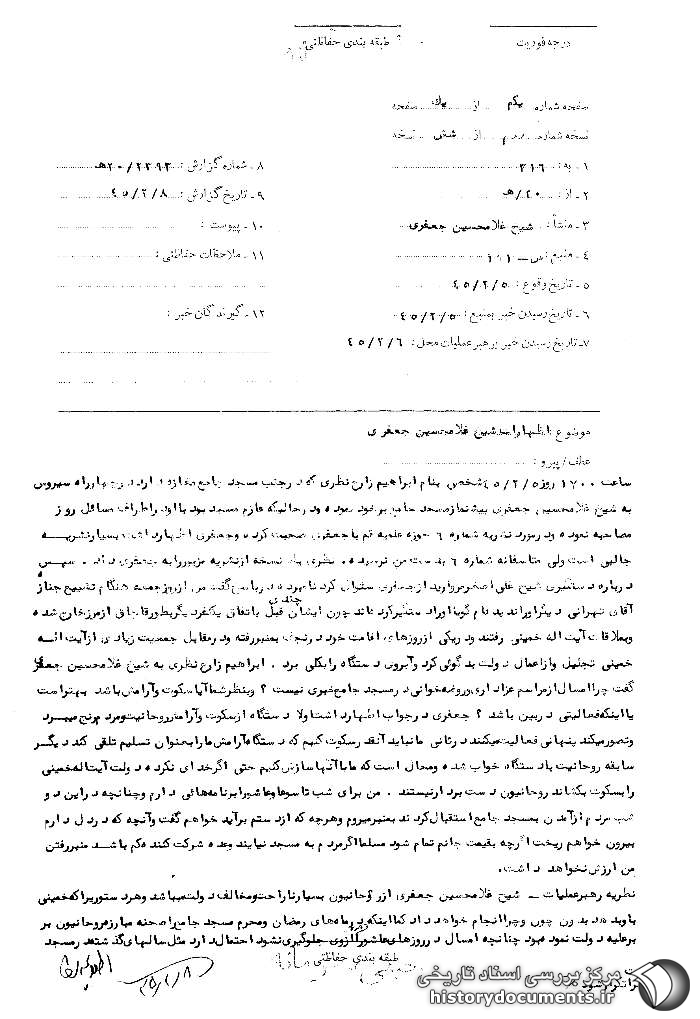 درجه فوریت
طبقه بندی حفاظتی
صفحه شماره یکم از یک صفحه
نسخه شماره از شش نسخه
۱ـ به : ۳۱۶
۲ـ از : ۴۰/هـ
۳ـ منشأ : شیخ غلامحسین جعفری
۴ـ منبع :
۵ـ تاریخ وقوع : ۴۵/۲/۵
۶ـ تاریخ رسیدن خبر بمنبع : ۴۵/۲/۵
۷ـ تاریخ رسیدن خبر برهبر عملیات محل : ۴۵/۲/۶
۸ـ شماره گزارش : ۲۰/۲۳۹۳هـ
۹ـ تاریخ گزارش : ۴۵/۲/۸
۱۰ـ پیوست :
۱۱ـ ملاحظات حفاظتی :
۱۲ـ گیرندگان خبر :
موضوع : اظهارات شیخ غلامحسین جعفری
عطف / پیرو :
ساعت ۱۷۰۰ روز ۴۵/۲/۵ شخصی بنام ابراهیم زارع نظری که در جنب مسجد جامع مغازه دارد در چهارراه سیروس
به شیخ غلامحسین جعفری پیشنماز مسجد جامع برخورد نموده و در حالیکه عازم مسجد بود با او در اطراف مسائل روز
مصاحبه نموده و در مورد نشریه شماره ۶ حوزه علمیه قم با جعفری صحبت کرده و جعفری اظهار داشت بسیار نشریه
جالبی است ولی متاسفانه شماره ۶ بدست من نرسیده . نظری یک نسخه از نشریه مزبور را به جعفری داد . سپس
درباره دستگیری شیخ علی اصغر مروارید از جعفری سئوال کرد نامبرده در پاسخ گفت من از روز جمعه هنگام تشییع جنازه
آقای تهرانی دیگر او را ندیدم گویا او را دستگیر کرده‌اند چون ایشان چندی قبل باتفاق یکنفر دیگر بطور قاچاق از مرز خارج شده
و بملاقات آیت اله خمینی رفتند و در یکی از روزهای اقامت خود در نجف بمنبر رفته و در مقابل جمعیت زیادی از آیت اله
خمینی تجلیل و از اعمال دولت بدگوئی کرد و آبروی دستگاه را بکلی برد . ابراهیم زارع نظری به شیخ غلامحسین جعفری
گفت چرا امسال از مراسم عزاداری و روضه خوانی در مسجد جامع خبری نیست ؟ و بنظر شما آیا سکوت و آرامش باشد بهتر است
یا اینکه فعالیتی در بین باشد ؟ جعفری در جواب اظهار داشت اولا دستگاه از سکوت و آرامش روحانیت و مردم رنج میبرد
و تصور میکند پنهانی فعالیت میکنند در ثانی ما نباید آنقدر سکوت کنیم که دستگاه آرامش ما را بعنوان تسلیم تلقی کند دیگر
سابقه روحانیت با دستگاه خواب شده و محال است که ما با آنها سازش کنیم حتی اگر خدای نکرده دولت آیت اله خمینی
را بسکوت بکشاند روحانیون دست بردار نیستند . من برای شب تاسوعا و عاشورا برنامه هائی دارم و چنانچه در این دو
شب مردم از آمدن بمسجد جامع استقبال کردند بمنبر میروم و هرچه که از دستم برآید خواهم گفت و آنچه که در دل دارم
بیرون خواهم ریخت اگرچه بقیمت جانم تمام شود مسلما اگر مردم به مسجد نیایند و عده شرکت کننده کم باشد منبر رفتن
من ارزش نخواهد داشت.
نظریه رهبر عملیات ـ شیخ غلامحسین جعفری از روحانیون بسیار ناراحت و مخالف دولت میباشد و هر دستوری را که خمینی
باو بدهد بدون چون و چرا انجام خواهد داد کما اینکه در ماه‌های رمضان و محرم مسجد جامع را صحنه مبارزه روحانیون بر
علیه دولت نموده بود چنانچه امسال در روزهای عاشورا از وی جلوگیری نشود احتمال دارد مثل سالهای گذشته در مسجد
طبقه بندی حفاظتی
تکرار شود
مرکز بررسی اسناد تاریخی
historydocuments.ir